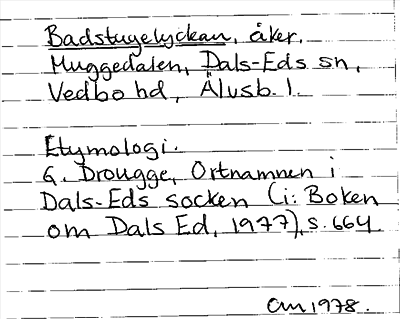 Badstugelyckan, åker,
Muggedalen, Dals-Eds sn,
Vedbo hd, Älvsb. l.
Etymologi.
G. Drougge, Ortnamnen i
Dals-Eds socken (i: Boken
om Dals Ed, 1977), s. 664.
CM 1978.